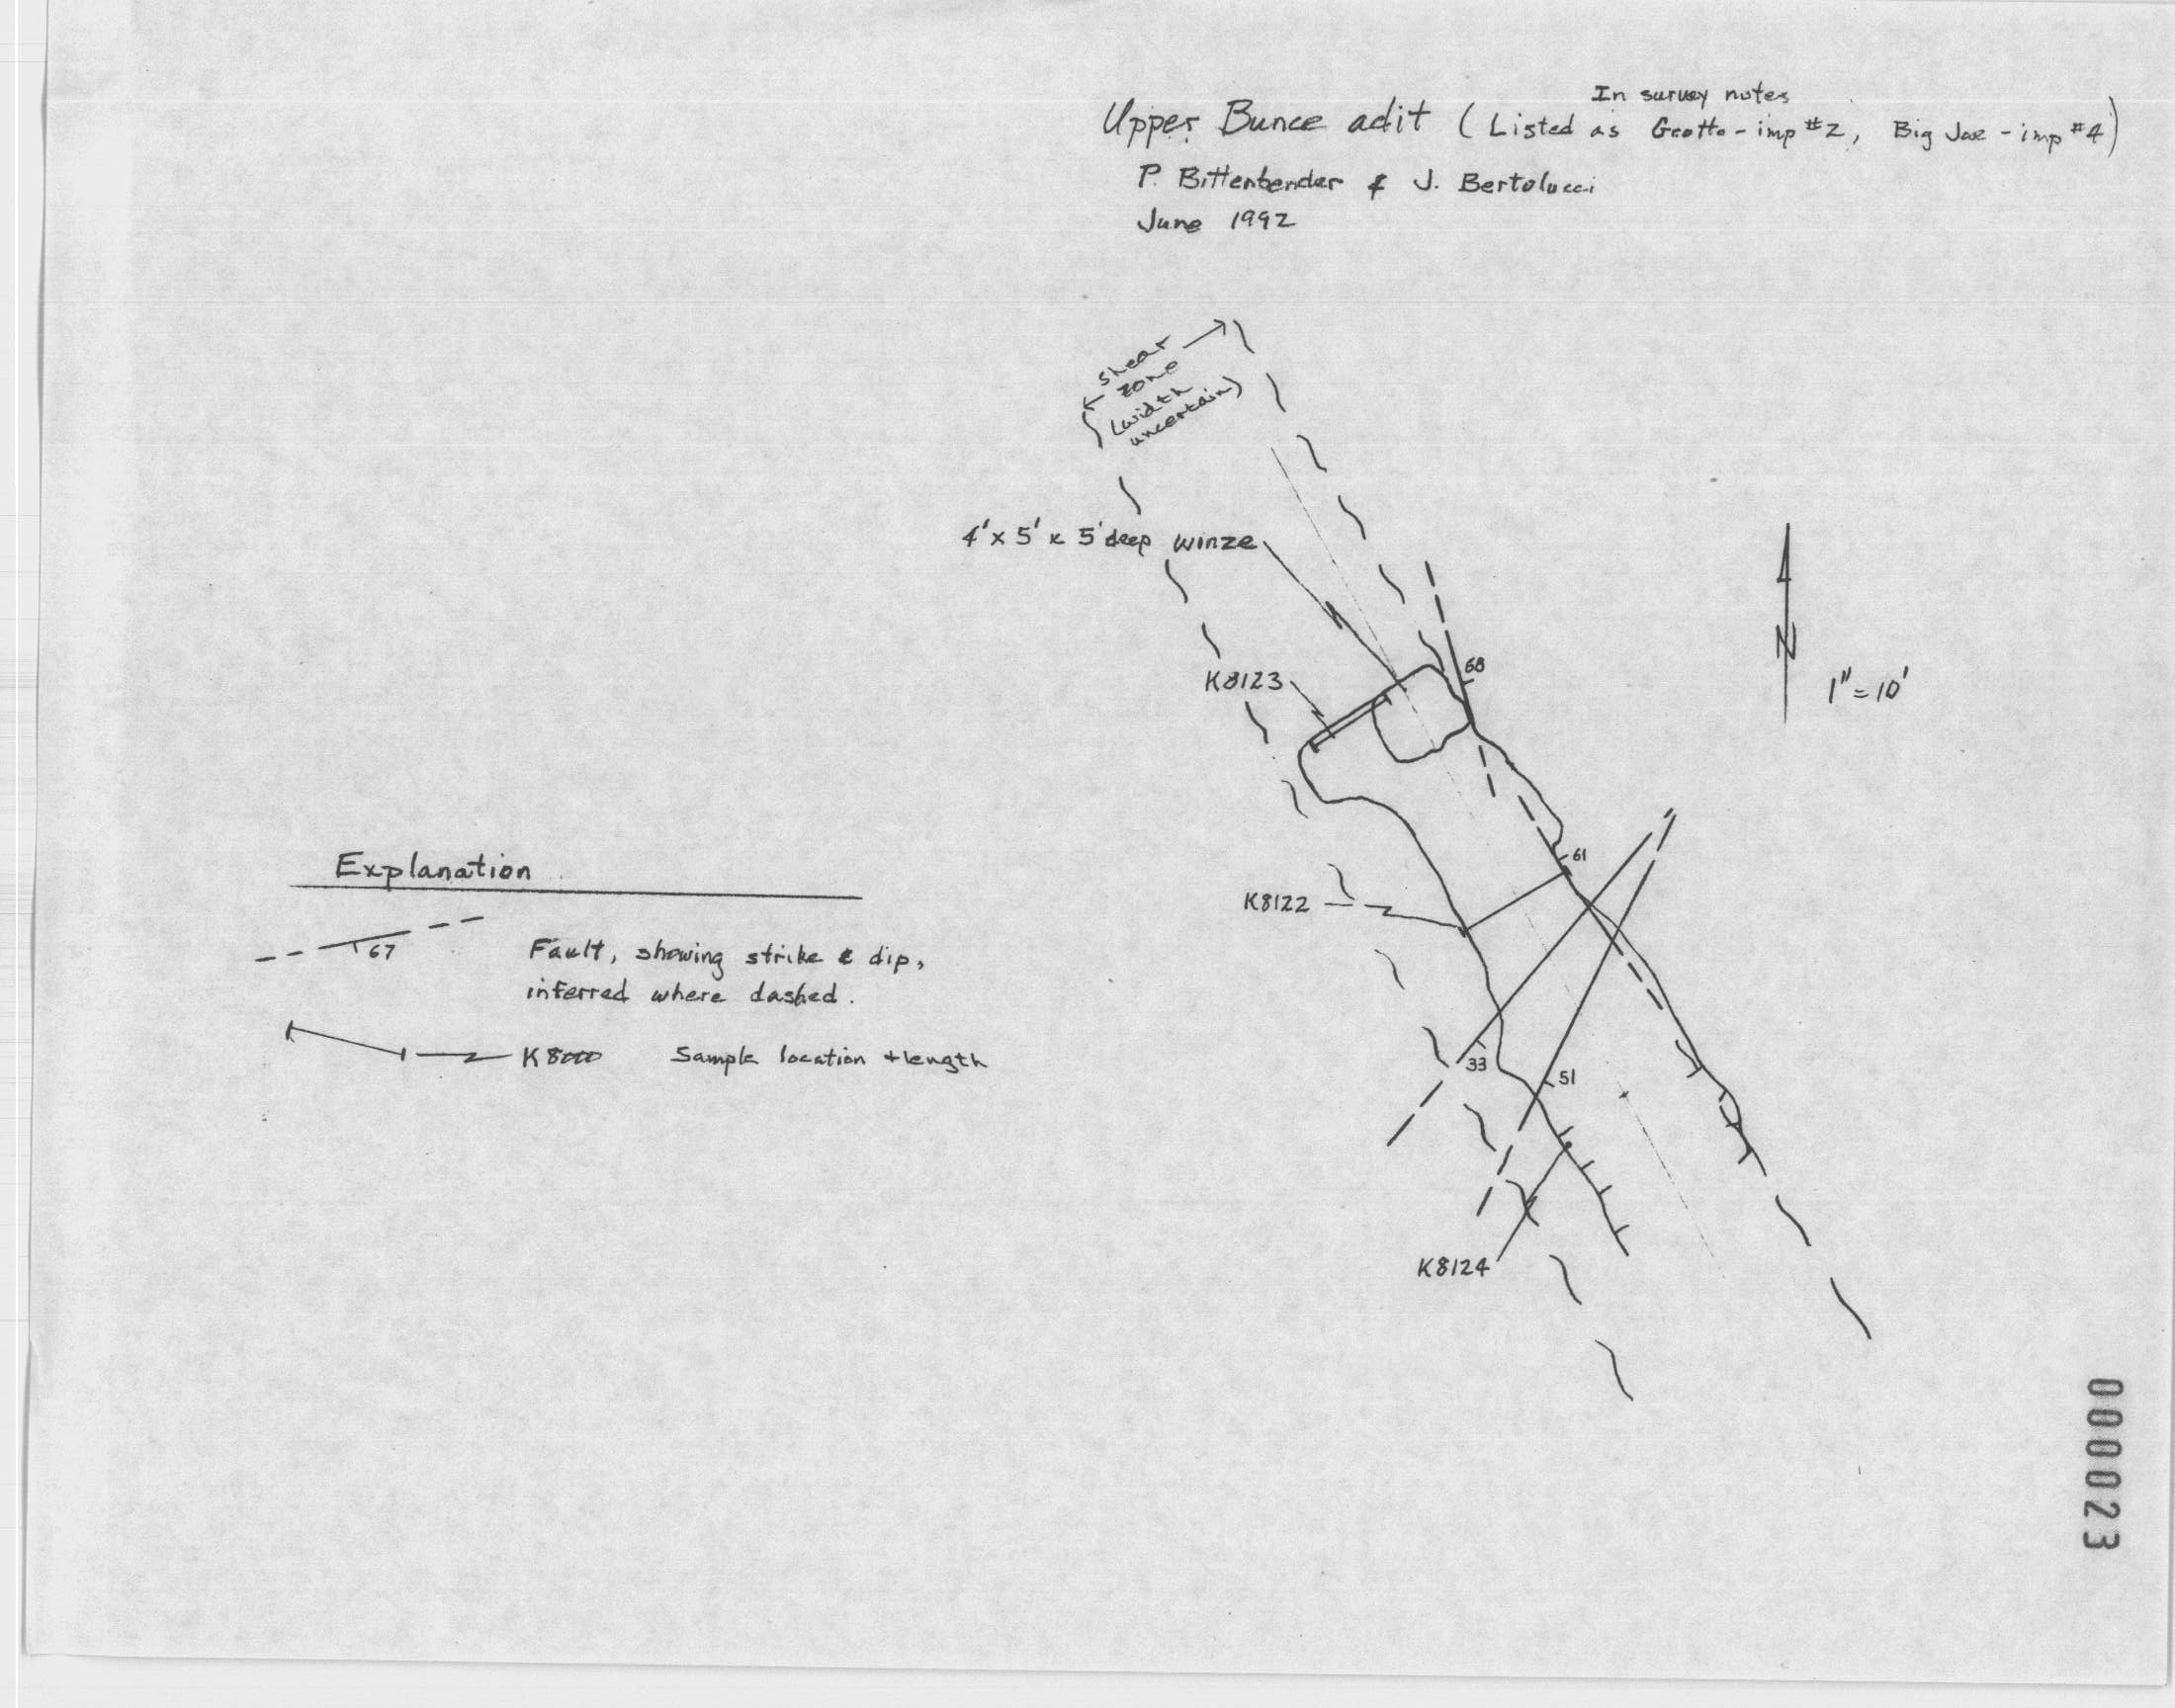 In survey notes
Upper Bunce adit (Listed as Grotto-imp #2, Big Joe-imp #4)
P. Bittenbender & J. Bertolucci
June 1992
shear
zone
(width
uncertain)
4' x 5' x 5' deep winze
K8123
68
N
1" = 10'
61
K8122
33
51
K8124
Explanation
67
Fault, showing strike & dip,
inferred where dashed.
K8000 Sample location + length
000023